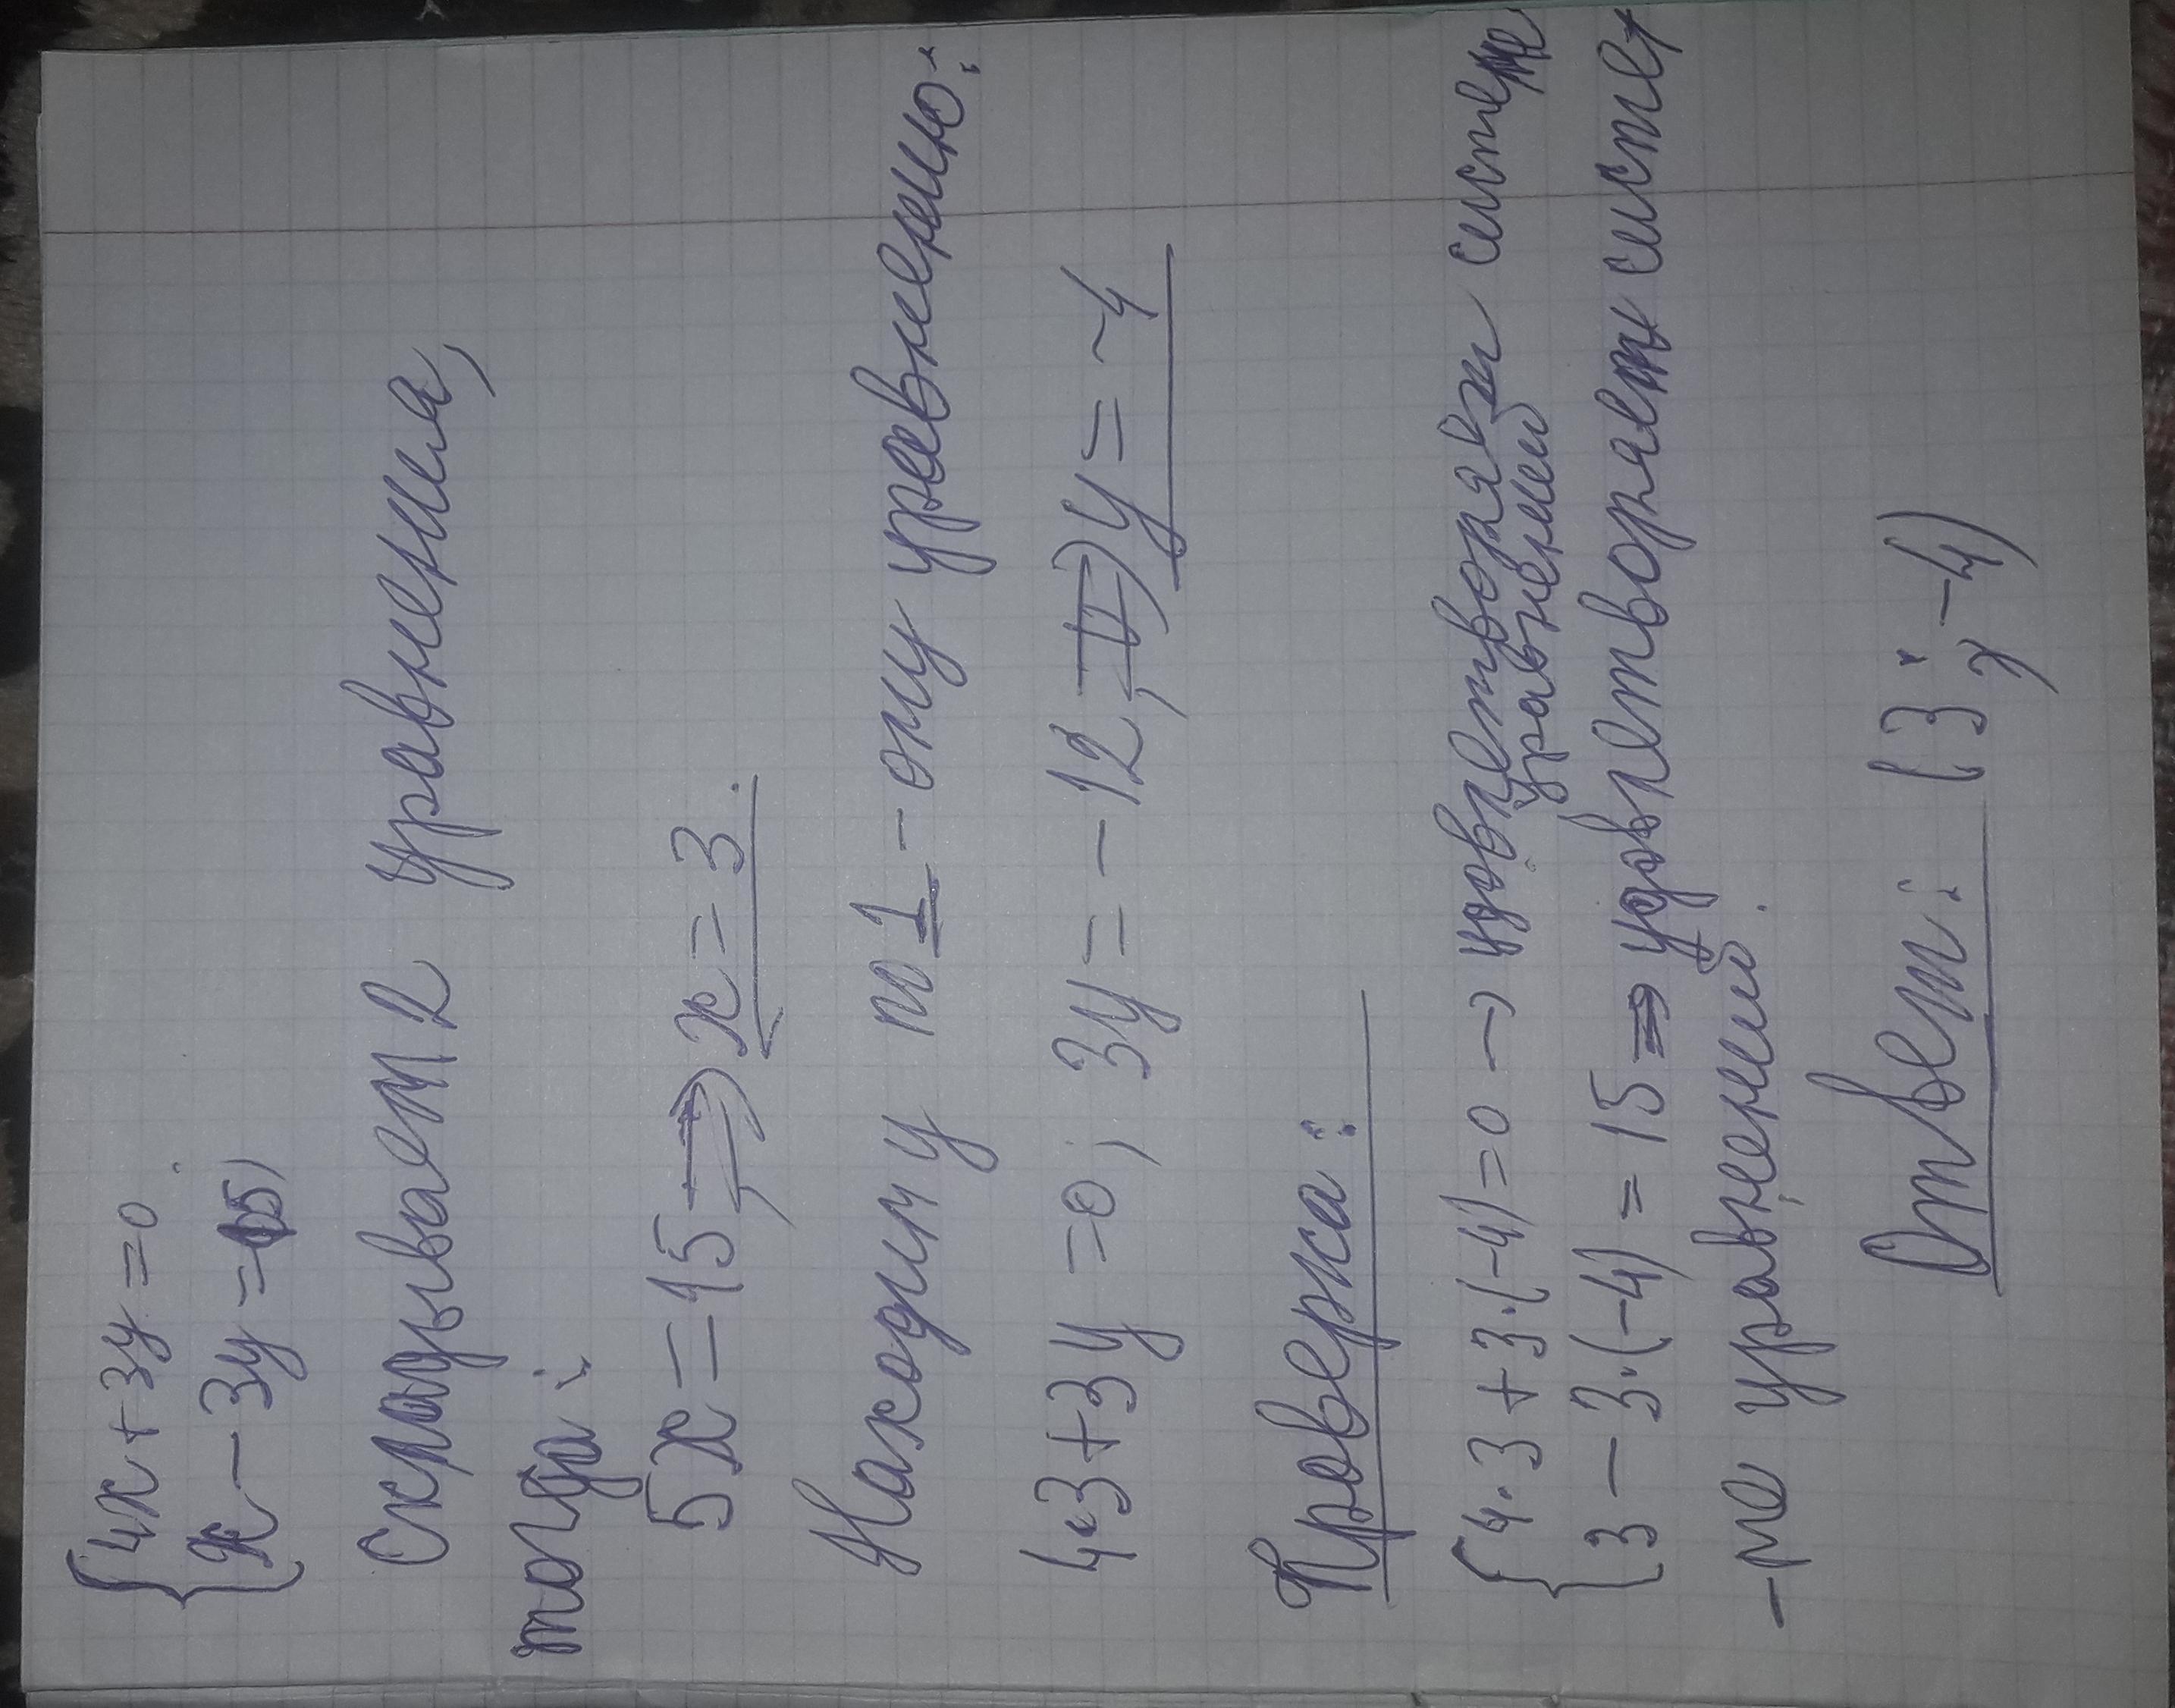 {4x + 3y = 0
{x − 3y = 15,
Складываем 2 уравнения,
тогда:
5x = 15 ⇒ x = 3.
Находим y по 1 - ому уравнению:
4·3 + 3y = 0; 3y = −12, ⇒ y = −4
Проверка:
{4·3 + 3·(−4) = 0 → удовлетворяет системе
уравнений
{3 − 3·(−4) = 15 ⇒ удовлетворяет систе
− ме уравнений.
Ответ: (3; −4)